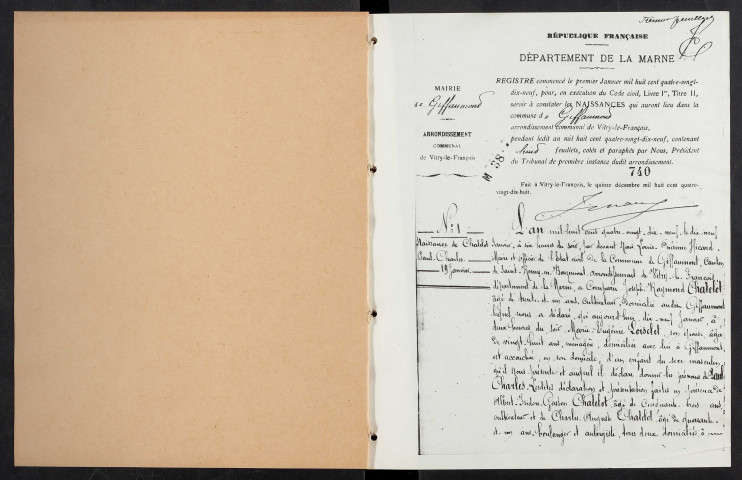 RÉPUBLIQUE FRANÇAISE
DÉPARTEMENT DE LA MARNE
MAIRIE
de Giffaumond
ARRONDISSEMENT
COMMUNAL
de Vitry-le-François
REGISTRE commencé le premier Janvier mil huit cent quatre-vingt-
dix-neuf, pour, en exécution du Code civil, Livre Ier, Titre II,
servir à constater les NAISSANCES qui auront lieu dans la
commune de Giffaumond
arrondissement communal de Vitry-le-François,
pendant ledit an mil huit cent quatre-vingt-dix-neuf, contenant
huit feuillets, cotés et paraphés par Nous, Président
du Tribunal de première instance dudit arrondissement.
740
Fait à Vitry-le-François, le quinze décembre mil huit cent quatre-
vingt-dix-huit.
N° 1
Naissance de Chatelot
Paul Charles
19 Janvier
L'an mil huit cent quatre-vingt-dix-neuf, le dix-neuf
Janvier, à six heures du soir, par devant Nous Louis
Maire et officier de l'Etat civil de la Commune de Giffaumont, Canton
de Saint-Remy-en-Bouzemont, arrondissement de Vitry-le-François
département de la Marne, a comparu Joseph Raymond Chatelot
âgé de trente-et-un ans, cultivateur, domicilié audit Giffaumont
lequel nous a déclaré, que aujourd'hui, dix-neuf Janvier, à
deux heures du soir Marie Eugénie Loiselet, son épouse, âgée
de vingt-huit ans, ménagère, domiciliée avec lui à Giffaumont,
est accouchée, en son domicile, d'un enfant du sexe masculin,
qu'il Nous présente et auquel il déclare donner les prénoms de Paul
Charles. Lesdites déclaration et présentation faites en présence de
Albert Chatelot, âgé de cinquante-trois ans
cultivateur et de Charles Auguste Chatelot, âgé de quarante-
et-un ans, boulanger et aubergiste, tous deux domiciliés à